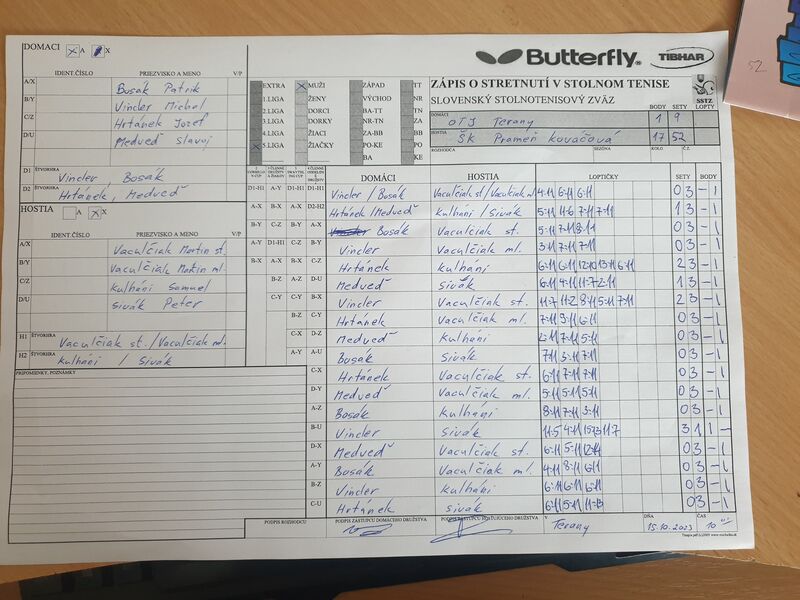 DOMACI A X
Butterfly TIBHAR
52
IDENT.ČÍSLO PRIEZVISKO A MENO V/P
A/X Bosák Patrik
B/Y Vincler Michal
C/Z Hrtánek Jozef
D/U Medveď Slavoj
D1 ŠTVORHRA Vincler, Bosák
D2 ŠTVORHRA Hrtánek, Medveď
HOSTIA A X
IDENT.ČÍSLO PRIEZVISKO A MENO V/P
A/X Vaculčiak Martin st.
B/Y Vaculčiak Martin ml.
C/Z Kulháni Samuel
D/U Sivák Peter
H1 ŠTVORHRA Vaculčiak st./Vaculčiak ml.
H2 ŠTVORHRA Kulháni / Sivák
PRIPOMIENKY, POZNÁMKY
EXTRA MUŽI ZÁPAD TT
1.LIGA ŽENY VÝCHOD NR
2.LIGA DORCI BA-TT TN
3.LIGA DORKY NR-TN ZA
4.LIGA ŽIACI ZA-BB BB
5.LIGA ŽIAČKY PO-KE PO
BA KE
ZÁPIS O STRETNUTÍ V STOLNOM TENISE
SLOVENSKÝ STOLNOTENISOVÝ ZVÄZ
SSTZ
BODY SETY LOPTY
DOMÁCI OTJ Terany 1 9
HOSTIA ŠK Prameň Kováčová 17 52
ROZHODCA SEZÓNA KOLO Č.Z.
DOMÁCI HOSTIA LOPTIČKY SETY BODY
D1-H1 Vincler / Bosák Vaculčiak st/Vaculčiak ml 4:11 6:11 6:11 0 3 - 1
D2-H2 Hrtánek/Medveď Kulháni / Sivák 5:11 11:6 7:11 7:11 1 3 - 1
A-X Bosák Vaculčiak st. 5:11 7:11 8:11 0 3 - 1
B-Y Vincler Vaculčiak ml. 3:11 7:11 7:11 0 3 - 1
C-Z Hrtánek Kulháni 6:11 6:11 12:10 13:11 6:11 2 3 - 1
D-U Medveď Sivák 6:11 4:11 11:7 2:11 1 3 - 1
B-X Vincler Vaculčiak st. 11:7 11:2 8:11 5:11 7:11 2 3 - 1
C-Y Hrtánek Vaculčiak ml. 7:11 9:11 6:11 0 3 - 1
D-Z Medveď Kulháni 7:11 5:11 0 3 - 1
A-U Bosák Sivák 7:11 3:11 7:11 0 3 - 1
C-X Hrtánek Vaculčiak st. 6:11 7:11 7:11 0 3 - 1
D-Y Medveď Vaculčiak ml. 5:11 5:11 5:11 0 3 - 1
A-Z Bosák Kulháni 8:11 7:11 3:11 0 3 - 1
B-U Vincler Sivák 11:5 4:11 15:13 11:7 3 1 1 -
D-X Medveď Vaculčiak st. 6:11 5:11 12:14 0 3 - 1
A-Y Bosák Vaculčiak ml. 4:11 8:11 6:11 0 3 - 1
B-Z Vincler Kulháni 6:11 6:11 6:11 0 3 - 1
C-U Hrtánek Sivák 6:11 5:11 11:13 0 3 - 1
PODPIS ROZHODCU PODPIS ZÁSTUPCU DOMÁCEHO DRUŽSTVA V Terany DŇA 15.10.2023 ČAS 10